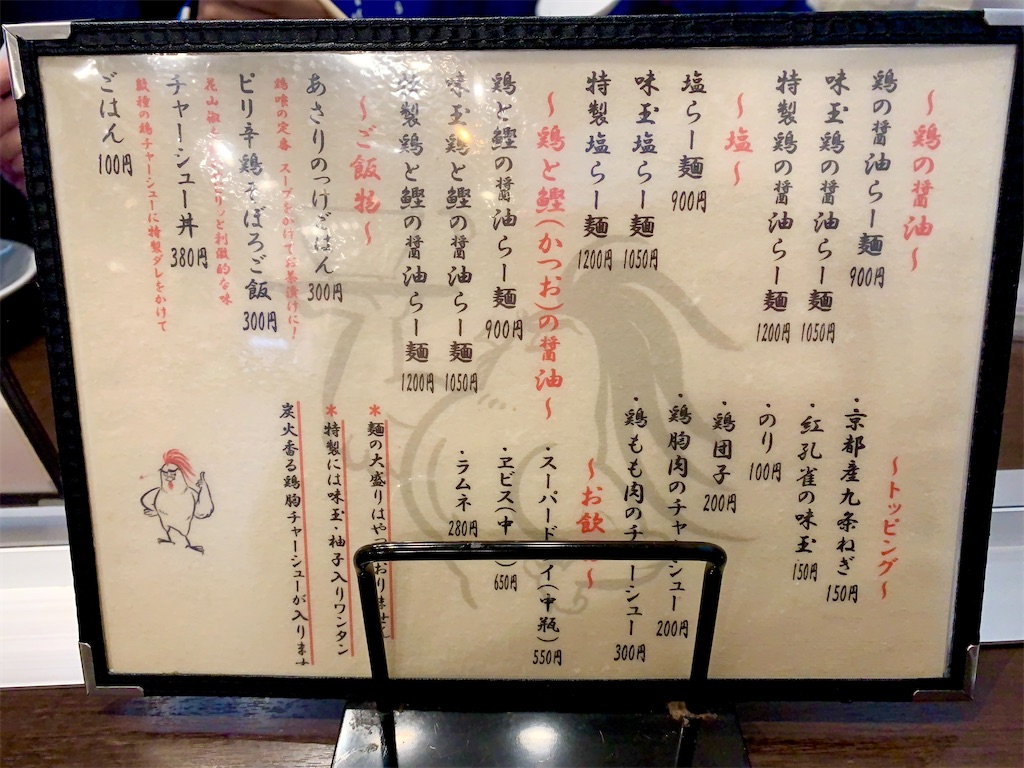 ～鶏の醤油～
鶏の醤油らー麺 900円
味玉鶏の醤油らー麺 1050円
特製鶏の醤油らー麺 1200円
～塩～
塩らー麺 900円
味玉塩らー麺 1050円
特製塩らー麺 1200円
～鶏と鰹(かつお)の醤油～
鶏と鰹の醤油らー麺 900円
味玉鶏と鰹の醤油らー麺 1050円
特製鶏と鰹の醤油らー麺 1200円
～ご飯物～
あさりのつけごはん 300円
鶏喰の定番 スープをかけてお茶漬けに！
ピリ辛鶏そぼろご飯 300円
花山椒 ピリッと刺激的な味
チャーシュー丼 380円
数種の鶏チャーシューに特製ダレをかけて
ごはん 100円
～トッピング～
・京都産九条ねぎ 150円
・紅孔雀の味玉 150円
・のり 100円
・鶏団子 200円
・鶏胸肉のチャーシュー 200円
・鶏もも肉のチャーシュー 300円
～お飲 ～
・スーパード イ(中瓶) 550円
・ヱビス(中 ) 650円
・ラムネ 280円
＊麺の大盛りはやっておりません
＊特製には味玉、柚子入りワンタン
炭火香る鶏胸チャーシューが入ります